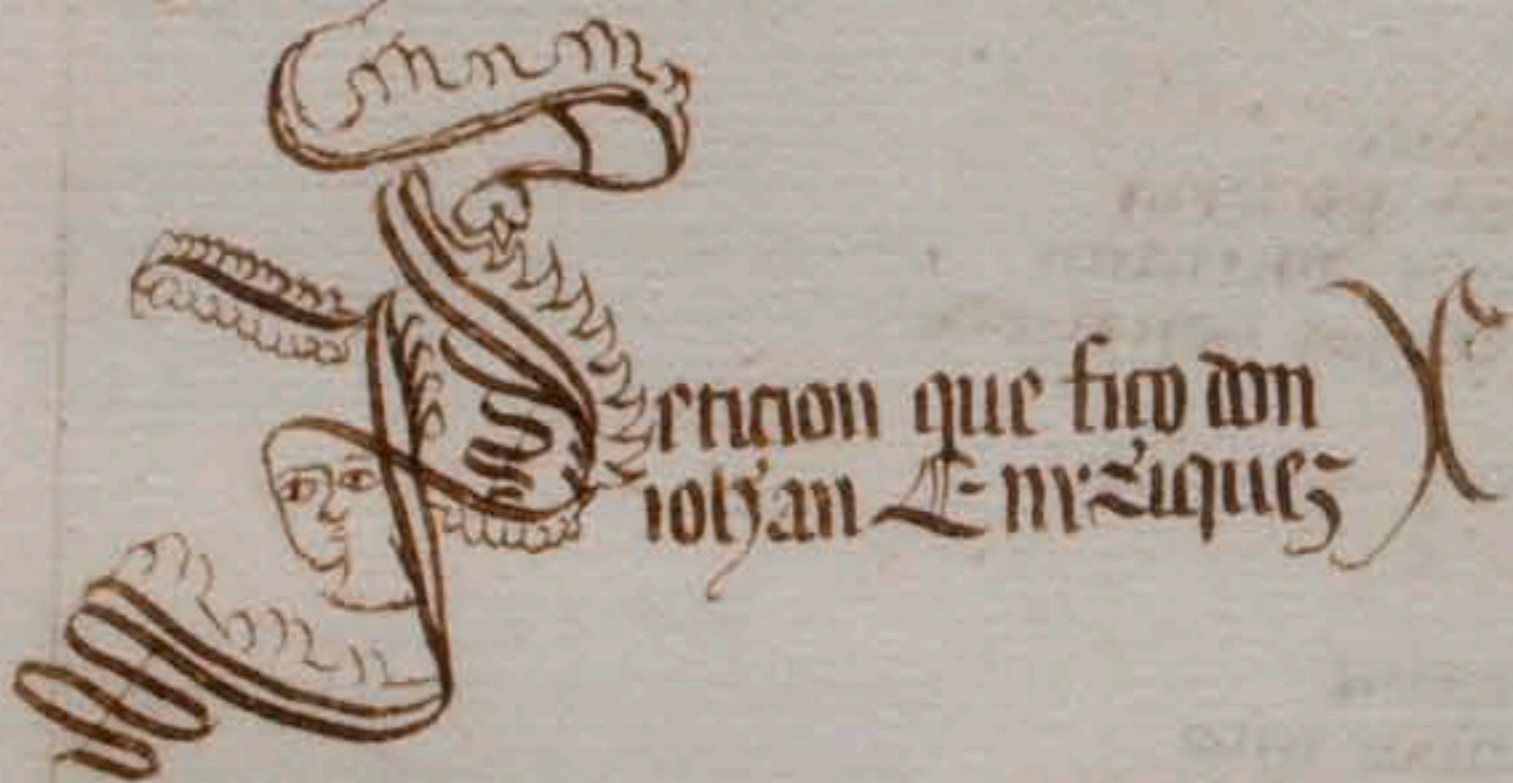 Peticion que fizo don
iohan Enrriquez